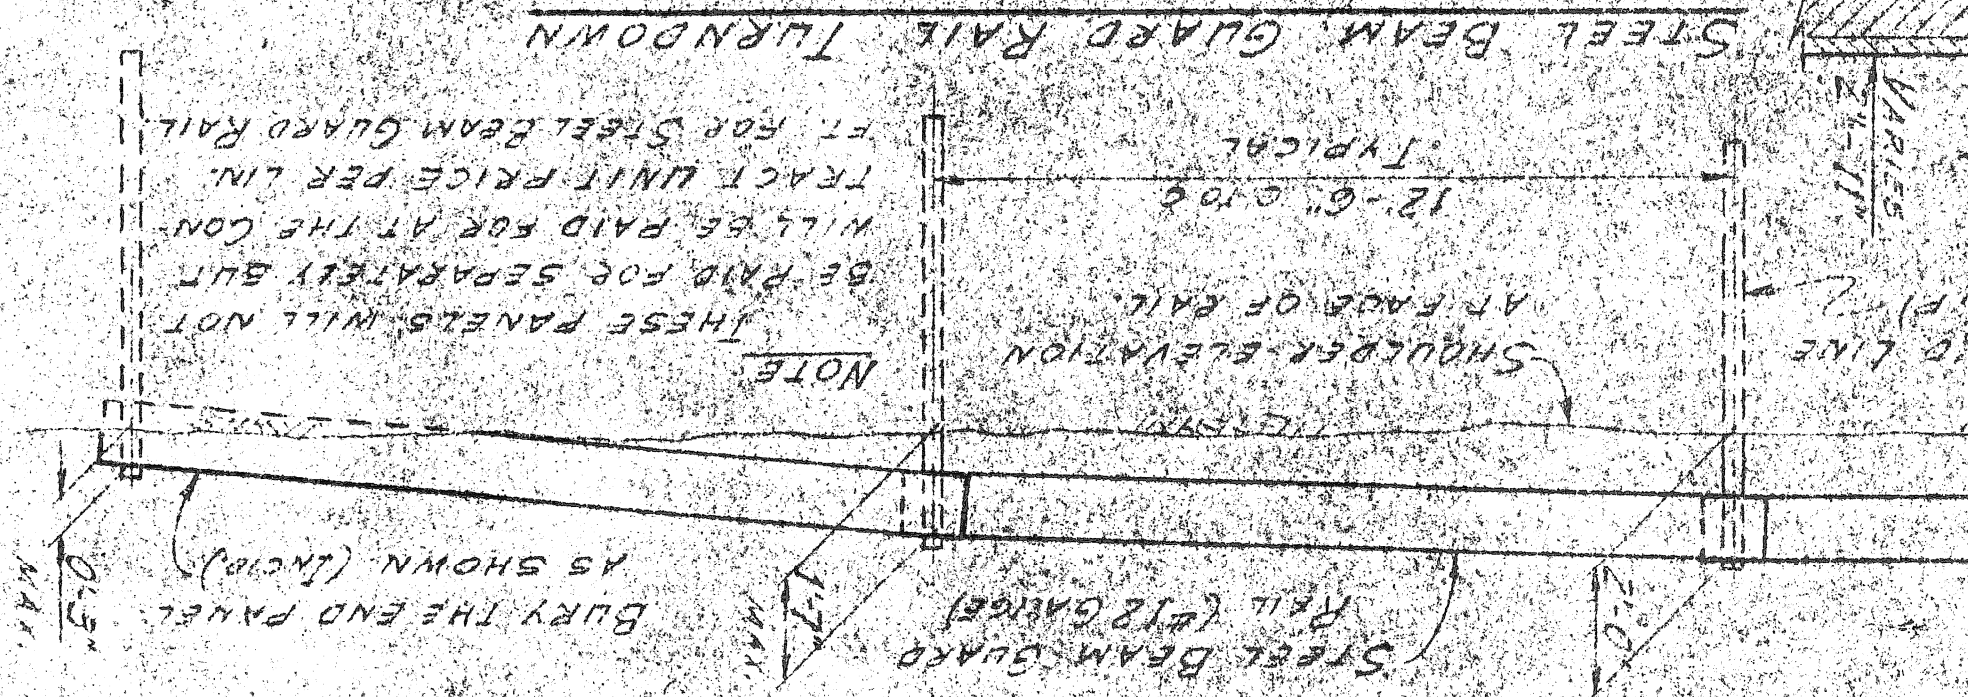 STEEL BEAM GUARD
RAIL (#12 GAUGE)
2'-0"
1'-7"
MAX.
BURY THE END PANEL
AS SHOWN (INCID)
0'-3"
MAX.
SHOULDER ELEVATION
AT FACE OF RAIL
LINE
NOTE
THESE PANELS WILL NOT
BE PAID FOR SEPARATELY BUT
WILL BE PAID FOR AT THE CON
TRACT UNIT PRICE PER LIN.
FT. FOR STEEL BEAM GUARD RAIL
12'-6" C TO C
TYPICAL
VARIES
STEEL BEAM GUARD RAIL TURNDOWN